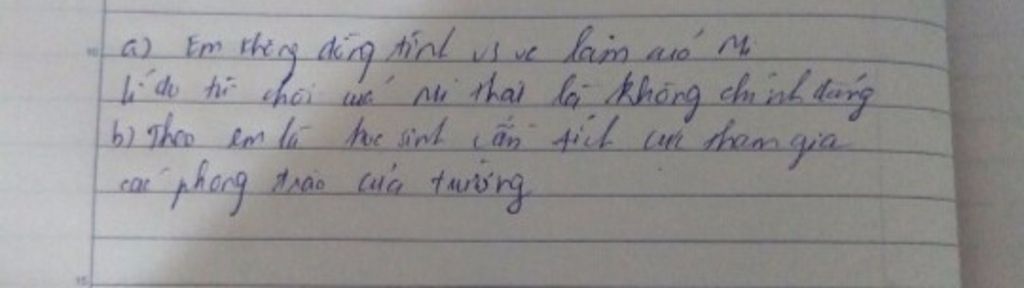 a) Em không đồng tình vs vc làm củả Mi
lí do từ chối củả Mi thai là không chính đáng
b) Theo em là học sinh cần tích cực tham gia
các phong trào của trường